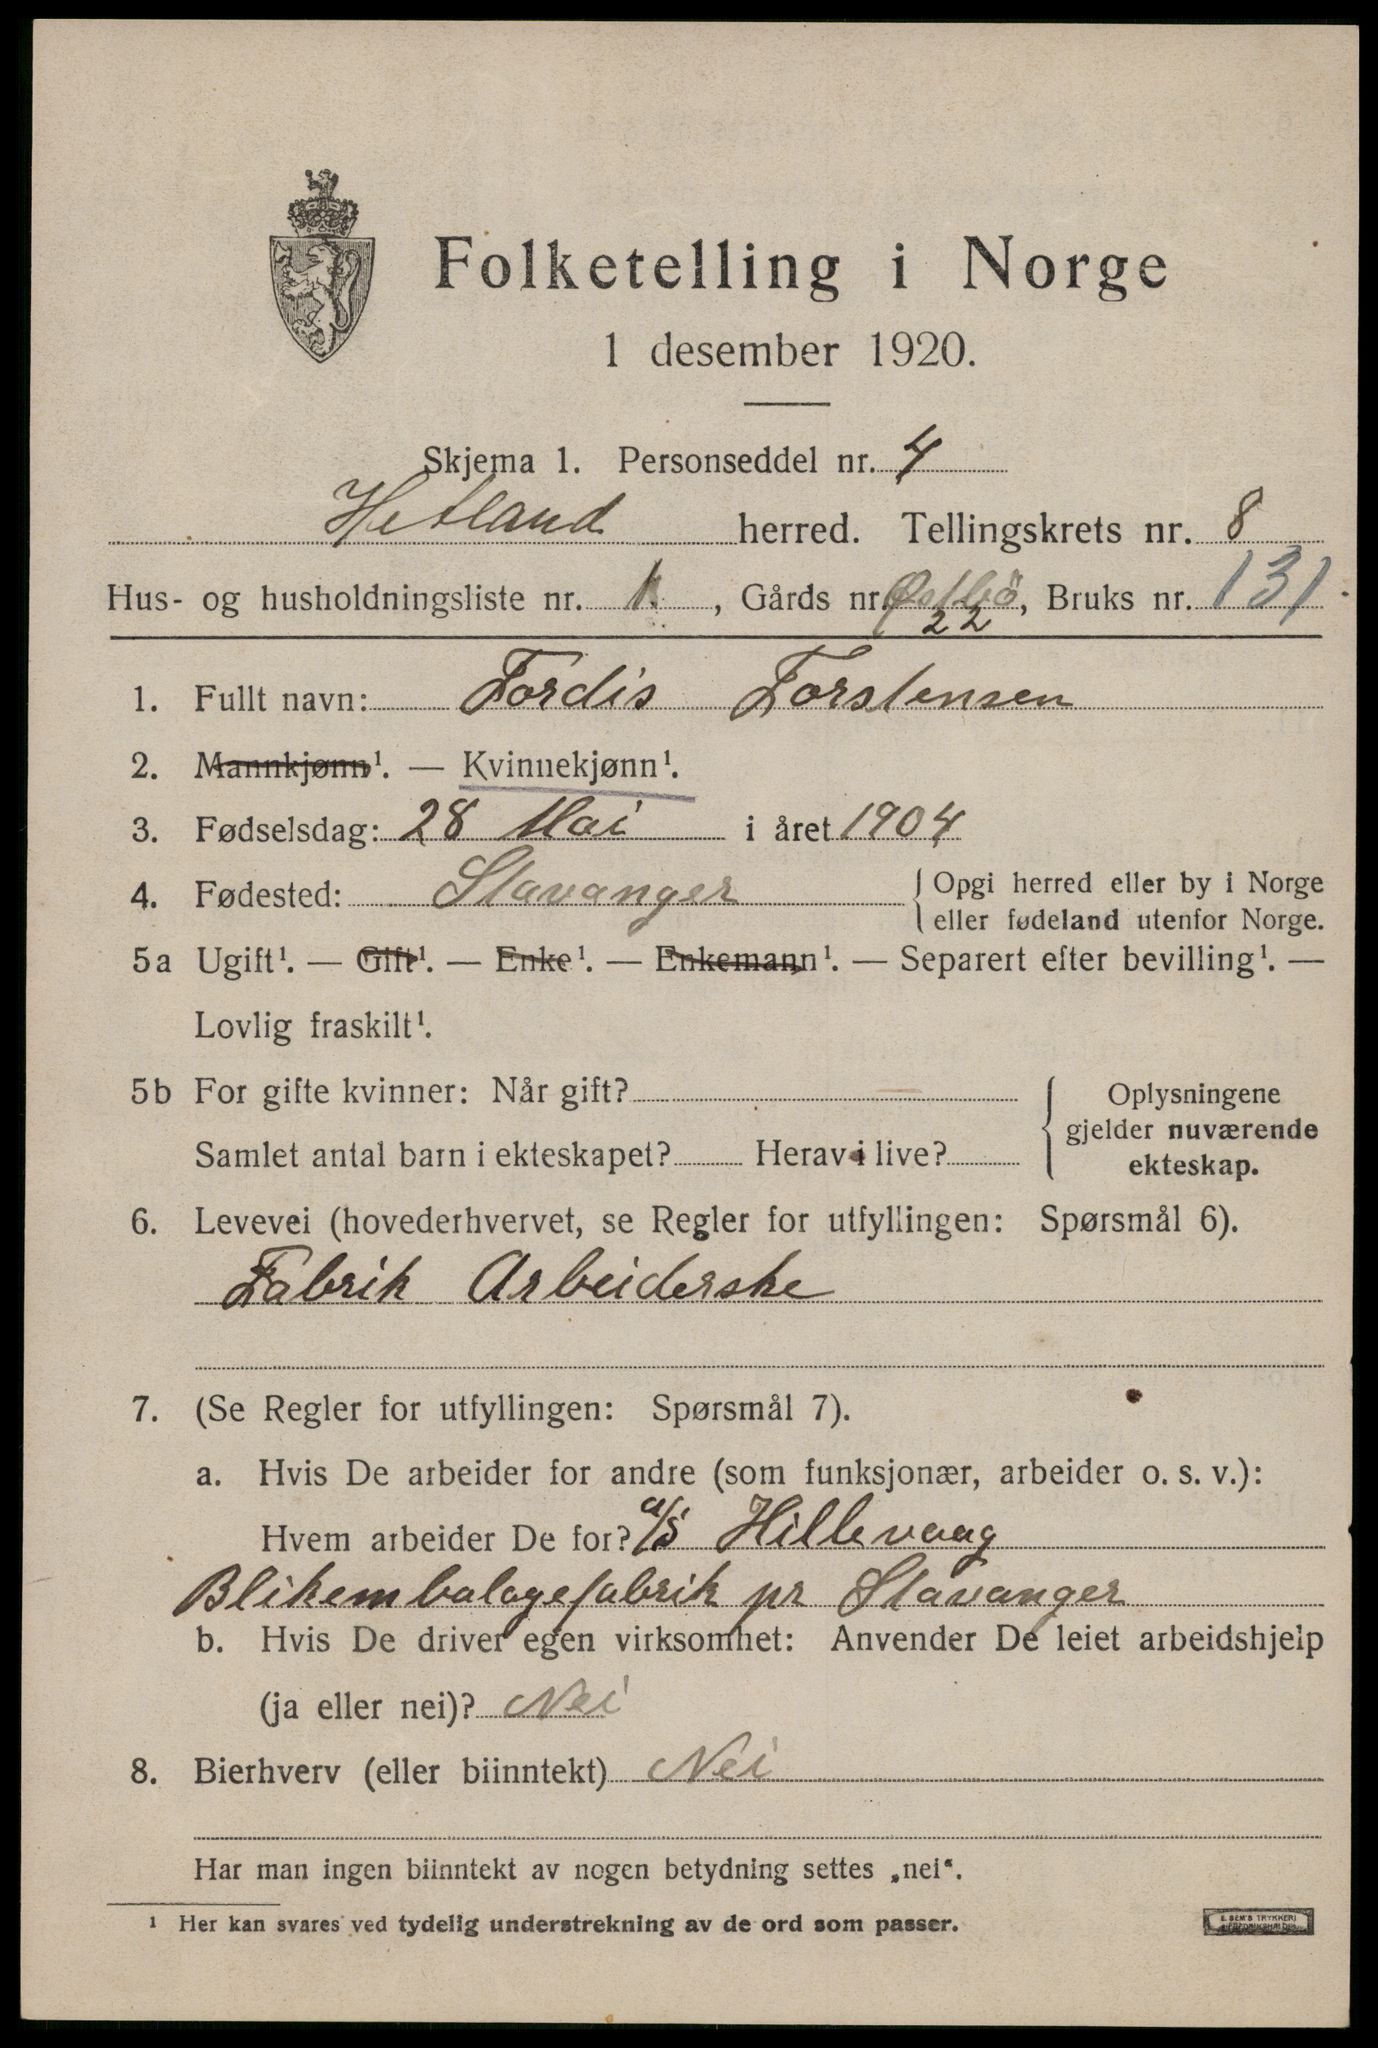 Folketelling i Norge
1 desember 1920.
Skjema 1. Personseddel nr. 4
Hetland herred. Tellingskrets nr. 8
Hus- og husholdningsliste nr. 1, Gårds nr. Østbö 22, Bruks nr. 131
1. Fullt navn: Tordis Torstensen
2. Mannkjønn¹. — Kvinnekjønn¹.
3. Fødselsdag: 28 Mai i året 1904
4. Fødested: Stavanger { Opgi herred eller by i Norge
eller fødeland utenfor Norge.
5a Ugift¹. — Gift¹. — Enke¹. — Enkemann¹. — Separert efter bevilling¹. —
Lovlig fraskilt¹.
5b For gifte kvinner: Når gift? { Oplysningene
gjelder nuværende
Samlet antal barn i ekteskapet? Herav i live? ekteskap.
6. Levevei (hovederhvervet, se Regler for utfyllingen: Spørsmål 6).
Fabrik Arbeiderske
7. (Se Regler for utfyllingen: Spørsmål 7).
a. Hvis De arbeider for andre (som funksjonær, arbeider o. s. v.):
Hvem arbeider De for? a/s Hillevaag
Blikembalagefabrik pr Stavanger
b. Hvis De driver egen virksomhet: Anvender De leiet arbeidshjelp
(ja eller nei)? Nei
8. Bierhverv (eller biinntekt) Nei
Har man ingen biinntekt av nogen betydning settes „nei“.
¹ Her kan svares ved tydelig understrekning av de ord som passer.
E. SEM'S TRYKKERI
FREDRIKSHALD